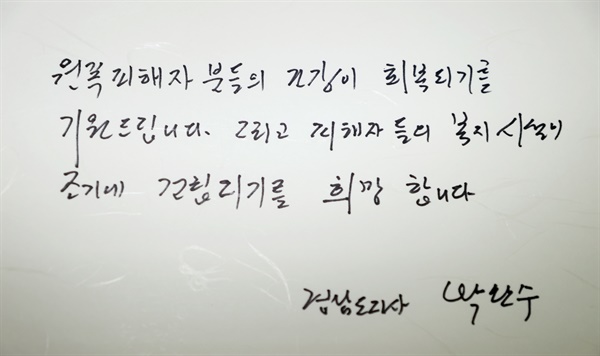 원폭피해자 분들의 건강이 회복되기를
기원드립니다. 그리고 피해자들의 복지시설이
조기에 건립되기를 희망 합니다
경남도지사 박완수